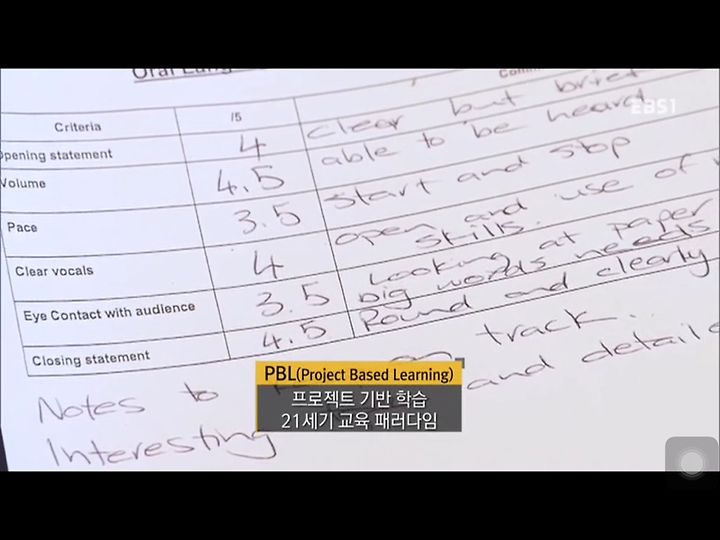 Oral
EBS1
Criteria /5
Opening statement 4 clear but brief
Volume 4.5 able to be heard
Pace 3.5 start and stop
Clear vocals 4 open and use of
skills.
Eye Contact with audience 3.5 Looking at paper
big words needs
Closing statement 4.5 Round and clearly
Notes to on track.
Interesting and detaile
PBL(Project Based Learning)
프로젝트 기반 학습
21세기 교육 패러다임